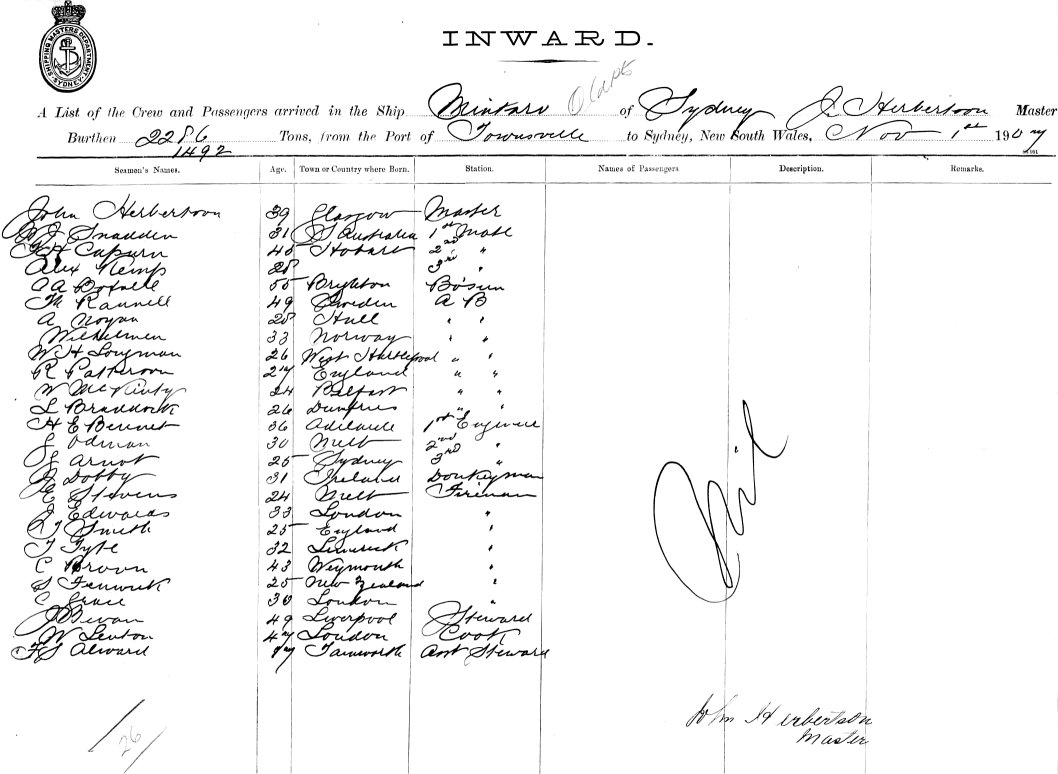 SHIPPING MASTERS DEPARTMENT SYDNEY
INWARD.
A List of the Crew and Passengers arrived in the Ship Mintaro of Sydney J. Herbertson Master
Burthen 2286 Tons, from the Port of Townsville to Sydney, New South Wales, Nov 1st 1907
1492
Seamen's Names. Age. Town or Country where Born. Station. Names of Passengers Description. Remarks.
John Herbertson 39 Glasgow Master
J Snadden 31 S Australia 1st Mate
H Capurn 40 Hobart 2nd "
Alex Kemp 28 3rd "
A Botell 55 Brighton Bosun
M Rannell 49 Sweden A B
A Nogan 28 Hull " "
Wilhelmen 33 Norway " "
W H Longman 26 West Hartlepool " "
R Patterson 27 England " "
W McKinty 24 Belfast " "
L Braddock 26 Dumfries " "
H E Bennet 36 Adelaide 1st Engineer
J Odman 30 Melb 2nd "
J Arnot 25 Sydney 3rd "
J Dobby 31 Ireland Donkeyman
E Stevens 24 Melb Fireman
J Edwards 33 London "
R J Smith 25 England "
T Fyfe 32 Limerick "
C Brown 43 Weymouth "
S Fenwick 25 New Zealand "
C Grace 30 London "
J Bevan 49 Liverpool Steward
W Lenton 47 London Cook
F S Alward Tamworth Asst Steward
Nil
John Herbertson
Master
26